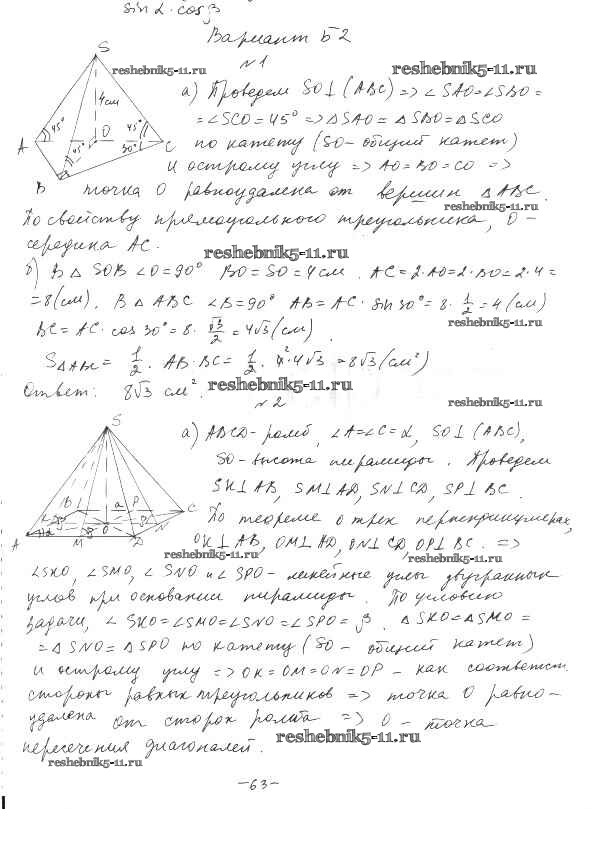 sin α · cos β
Вариант Б2
№1
S
reshebnik5-11.ru
reshebnik5-11.ru
4см
45°
O
45°
A
45°
30°
C
B
а) Проведем SO⊥(ABC) => ∠SAO=∠SBO=
=∠SCO=45° => △SAO=△SBO=△SCO
по катету (SO-общий катет)
и острому углу => AO=BO=CO =>
точка O равноудалена от вершин △ABC.
reshebnik5-11.ru
По свойству прямоугольного треугольника, O –
середина AC.
reshebnik5-11.ru
б) В △ SOB ∠O=90° BO=SO=4см. AC=2·AO=2·BO=2·4=
=8(см). В △ ABC ∠B=90° AB=AC·sin 30°=8·1/2=4(см)
reshebnik5-11.ru
BC=AC·cos 30°=8·√3/2=4√3(см)
S△ABC=1/2·AB·BC=1/2·4·4√3=8√3(см²)
Ответ: 8√3 см².
reshebnik5-11.ru
№2
reshebnik5-11.ru
S
B
a
P
C
O
A
M
D
N
а) ABCD-ромб, ∠A=∠C=α, SO⊥(ABC),
SO-высота пирамиды. Проведем
SK⊥AB, SM⊥AD, SN⊥CD, SP⊥BC.
По теореме о трех перпендикулярах,
OK⊥AB, OM⊥AD, ON⊥CD, OP⊥BC. =>
reshebnik5-11.ru
reshebnik5-11.ru
∠SKO, ∠SMO, ∠SNO и ∠SPO- линейные углы двугранных
углов при основании пирамиды. По условию
задачи, ∠SKO=∠SMO=∠SNO=∠SPO=β. △SKO=△SMO=
=△SNO=△SPO по катету (SO- общий катет)
и острому углу => OK=OM=ON=OP - как соответств.
стороны равных треугольников => точка O равно-
удалена от сторон ромба => O- точка
пересечения диагоналей.
reshebnik5-11.ru
reshebnik5-11.ru
-63-